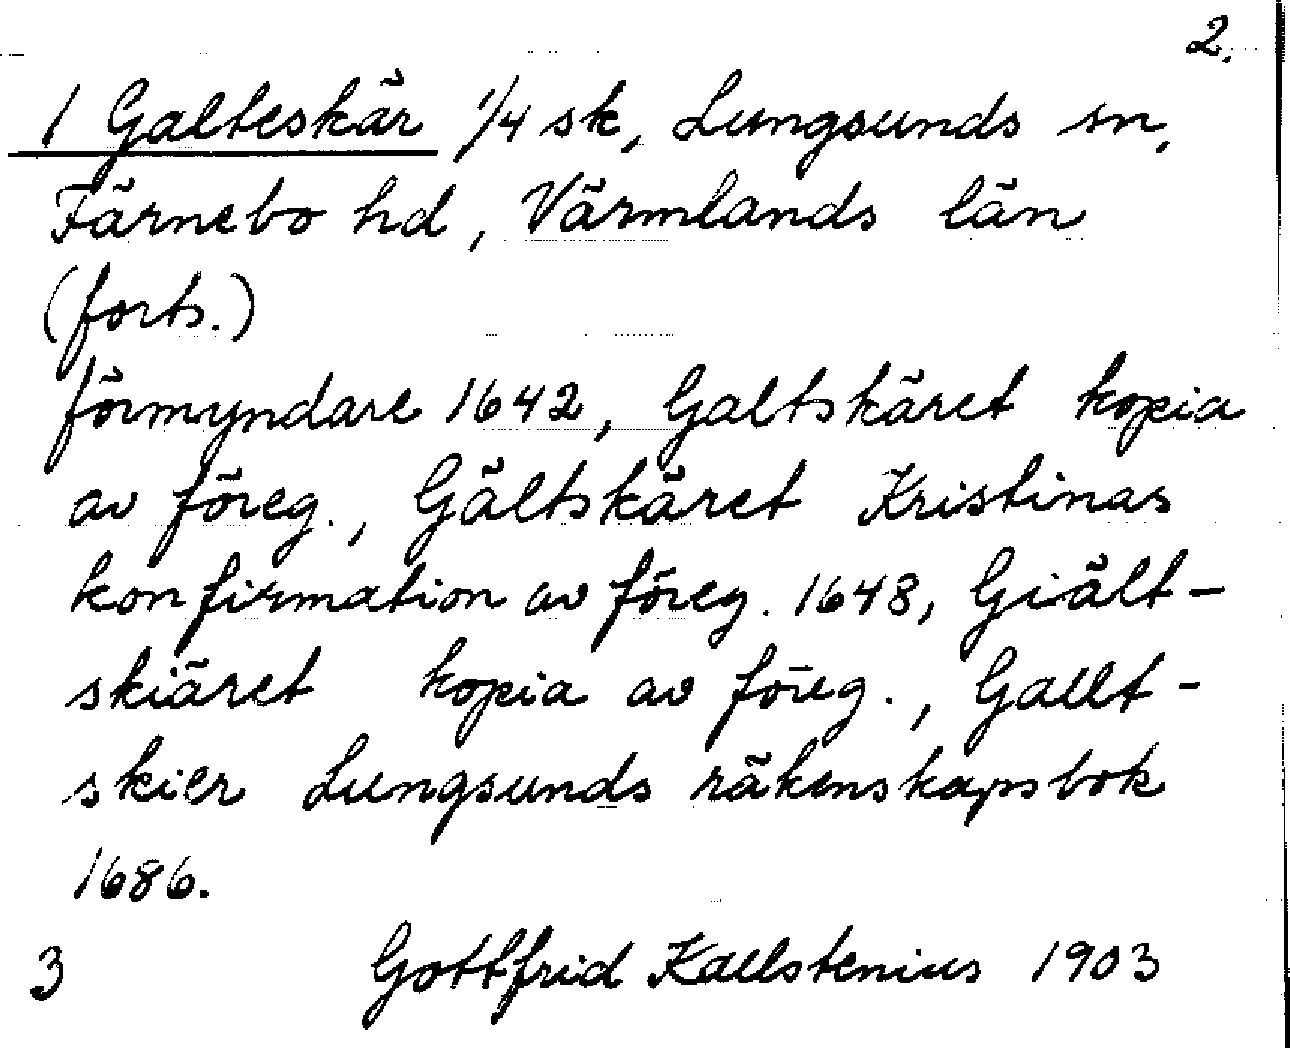 2.
1 Galteskär 1/4 sk, Lungsunds sn,
Färnebo hd, Värmlands län
(forts.)
förmyndare 1642, Galtskäret kopia
av föreg., Gältskäret Kristinas
konfirmation av föreg. 1648, Giält-
skiäret kopia av föreg., Gallt-
skier Lungsunds räkenskapsbok
1686.
3 Gottfrid Kallstenius 1903